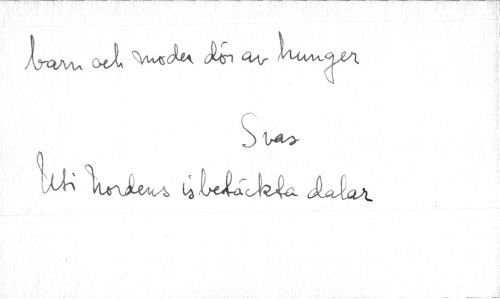 barn och moder dör av hunger
Svas
Uti Nordens isbetäckta dalar